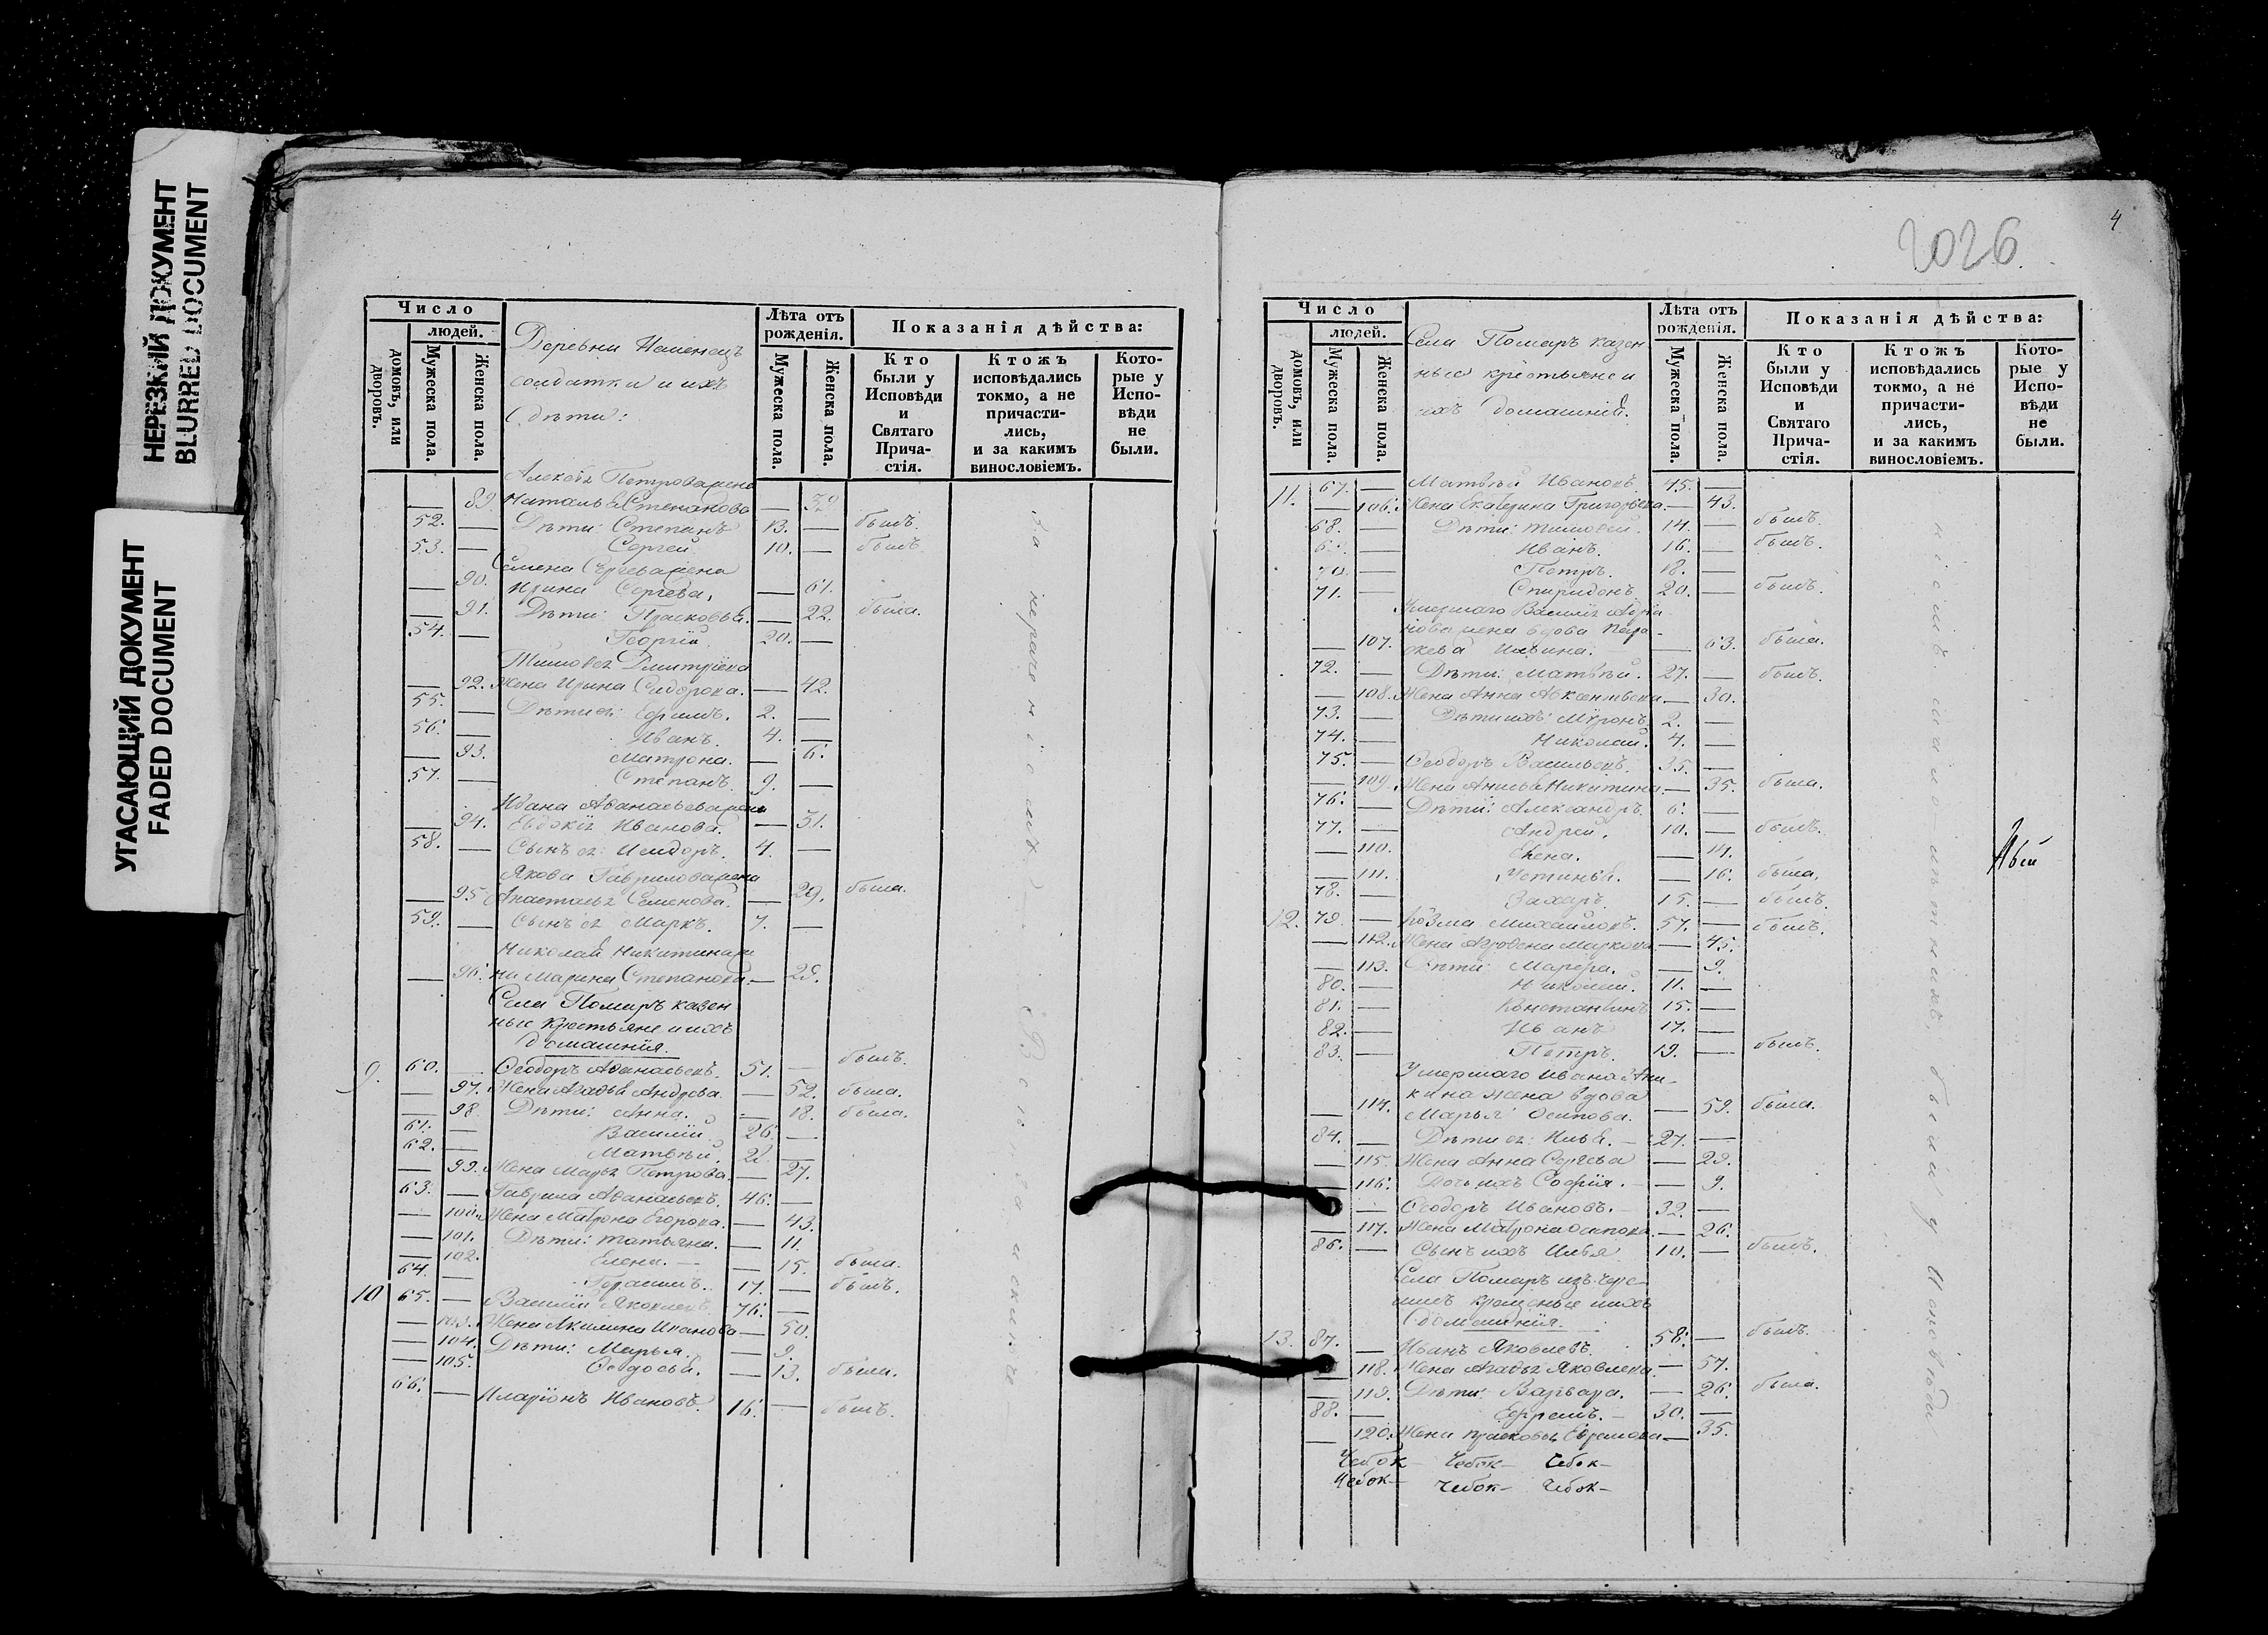 НЕРЕЗКИЙ ДОКУМЕНТ
BLURRED DOCUMENT
УГАСАЮЩИЙ ДОКУМЕНТ
FADED DOCUMENT
Число
людей.
домовъ, или дворовъ.
Мужеска пола.
Женска пола.
Деревни
солдатки и ихъ
дѣти:
Лѣта отъ рожденія.
Мужеска пола.
Женска пола.
Показанія дѣйства:
Кто были у Исповѣди и Святаго Прича- стія.
Ктожъ исповѣдались токмо, а не причасти- лись, и за какимъ винословіемъ.
Кото- рые у Испо- вѣди не были.
Алексѣя Петрова жена
89. Наталья Степанова — 32
52. — Дѣти: Степанъ 13. — былъ.
53. — Сергей 10. — былъ
Семена Сергеева жена
90. Ирина Сергева, — 61.
91. Дѣти: Прасковья. — 22. была.
54. — Георгій 20. —
Тимофея Дмитріева
— 92. Жена Ирина Сидорова. — 42.
55. — Дѣти ея: Ефимъ. 2. —
56. — Иванъ. 4. —
93. Матрона. — 6.
57. — Степанъ. 9. —
Ивана Аѳанасьева жена
— 94. Евдокія Иванова. — 31.
58. — Сынъ ея: Исидоръ. 4. —
Якова Гаврилова жена
— 95 Анастасья Семенова. — 29. была.
59. — Сынъ ея Маркъ. 7. —
Николая Никитина же
— 96. на Марина Степанова. — 28.
Села Помаръ казен
ные крестьяне и ихъ
домашнія.
9. 60. — Ѳеодоръ Аѳанасьевъ. 51. — былъ.
97. Жена Агафья Андреева. — 52. была.
— 98. Дѣти: Анна. — 18. была.
61. — Василій. 26. —
62. — Матвѣй. 22. —
— 99. Жена Марья Петрова. — 27.
63. — Гаврила Аѳанасьевъ. 46. —
— 100. Жена Матрона Егорова. — 43.
— 101. Дѣти: Татьяна. — 11.
— 102. Елена. — 15. была.
64. — Герасимъ. 17. — былъ.
10 65. — Василій Яковлевъ. 76. —
— 103. Жена Акилина Иванова — 50.
— 104. Дѣти: Марья. — 9.
— 105. Ѳеодосья. — 13. была.
66. — Иларіонъ Ивановъ. 16. — былъ.
4
2026
Число
людей.
домовъ, или дворовъ.
Мужеска пола.
Женска пола.
Села Помаръ казен
ные крестьяне и
ихъ домашніе.
Лѣта отъ рожденія.
Мужеска пола.
Женска пола.
Показанія дѣйства:
Кто были у Исповѣди и Святаго Прича- стія.
Ктожъ исповѣдались токмо, а не причасти- лись, и за какимъ винословіемъ.
Кото- рые у Испо- вѣди не были.
11. 67. — Матвѣй Ивановъ. 45. —
— 106. Жена Екатерина Григорьева. — 43.
68. — Дѣти: Тимофей. 14. — былъ.
69. — Иванъ. 16. — былъ.
70. — Петръ. 18. —
71. — Спиридонъ. 20. — былъ.
Умершаго Василія Адріа-
нова жена вдова Пара-
— 107. скева Ильина. — 63. была.
72. — Дѣти: Матвѣй. 27. — былъ.
— 108. Жена Анна Авксентьева — 30.
73. — Дѣти ихъ: Миронъ. 2. —
74. — Николай. 4. —
75. — Ѳеодоръ Васильевъ. 35. —
— 109. Жена Анисья Никитина. — 35. была.
76. — Дѣти: Александръ. 6. —
77. — Андрей. 10. — былъ.
— 110. Елена. — 14.
— 111. Устинья. — 16. была,
78. — Захаръ. 15. — былъ.
12. 79. — Козма Михайловъ. 57. — былъ.
— 112. Жена Аграфена Маркова. — 45.
— 113. Дѣти: Марфа. — 9.
80. — Николай. 11. —
81. — Константинъ 15. —
82. — Иванъ 17. —
83. — Петръ. 19. — былъ.
Умершаго Ивана Ани-
кина жена вдова
— 114. Марья Осипова. — 59. была.
84. — Дѣти ея: Илья. — 27. —
— 115. Жена Анна Сергева — 29.
— 116. Дочь ихъ Софія. — 9.
— Ѳеодоръ Ивановъ. — 32. —
— 117. Жена Матрона Осипова. — 26.
86. — Сынъ ихъ Илья 10. — былъ.
Села Помаръ изъ чере-
мисъ крещеные и ихъ
домашнія.
13. 87. — Иванъ Яковлевъ. 58. — былъ.
— 118. Жена Агафья Яковлева. — 57.
— 119. Дѣти: Варвара. — 26. была.
88. — Ефремъ. — 30. —
— 120. Жена Прасковья Ефремова — 35.
Чебок — Чебок — Чебок —
Чебок — Чебок — Чебок —